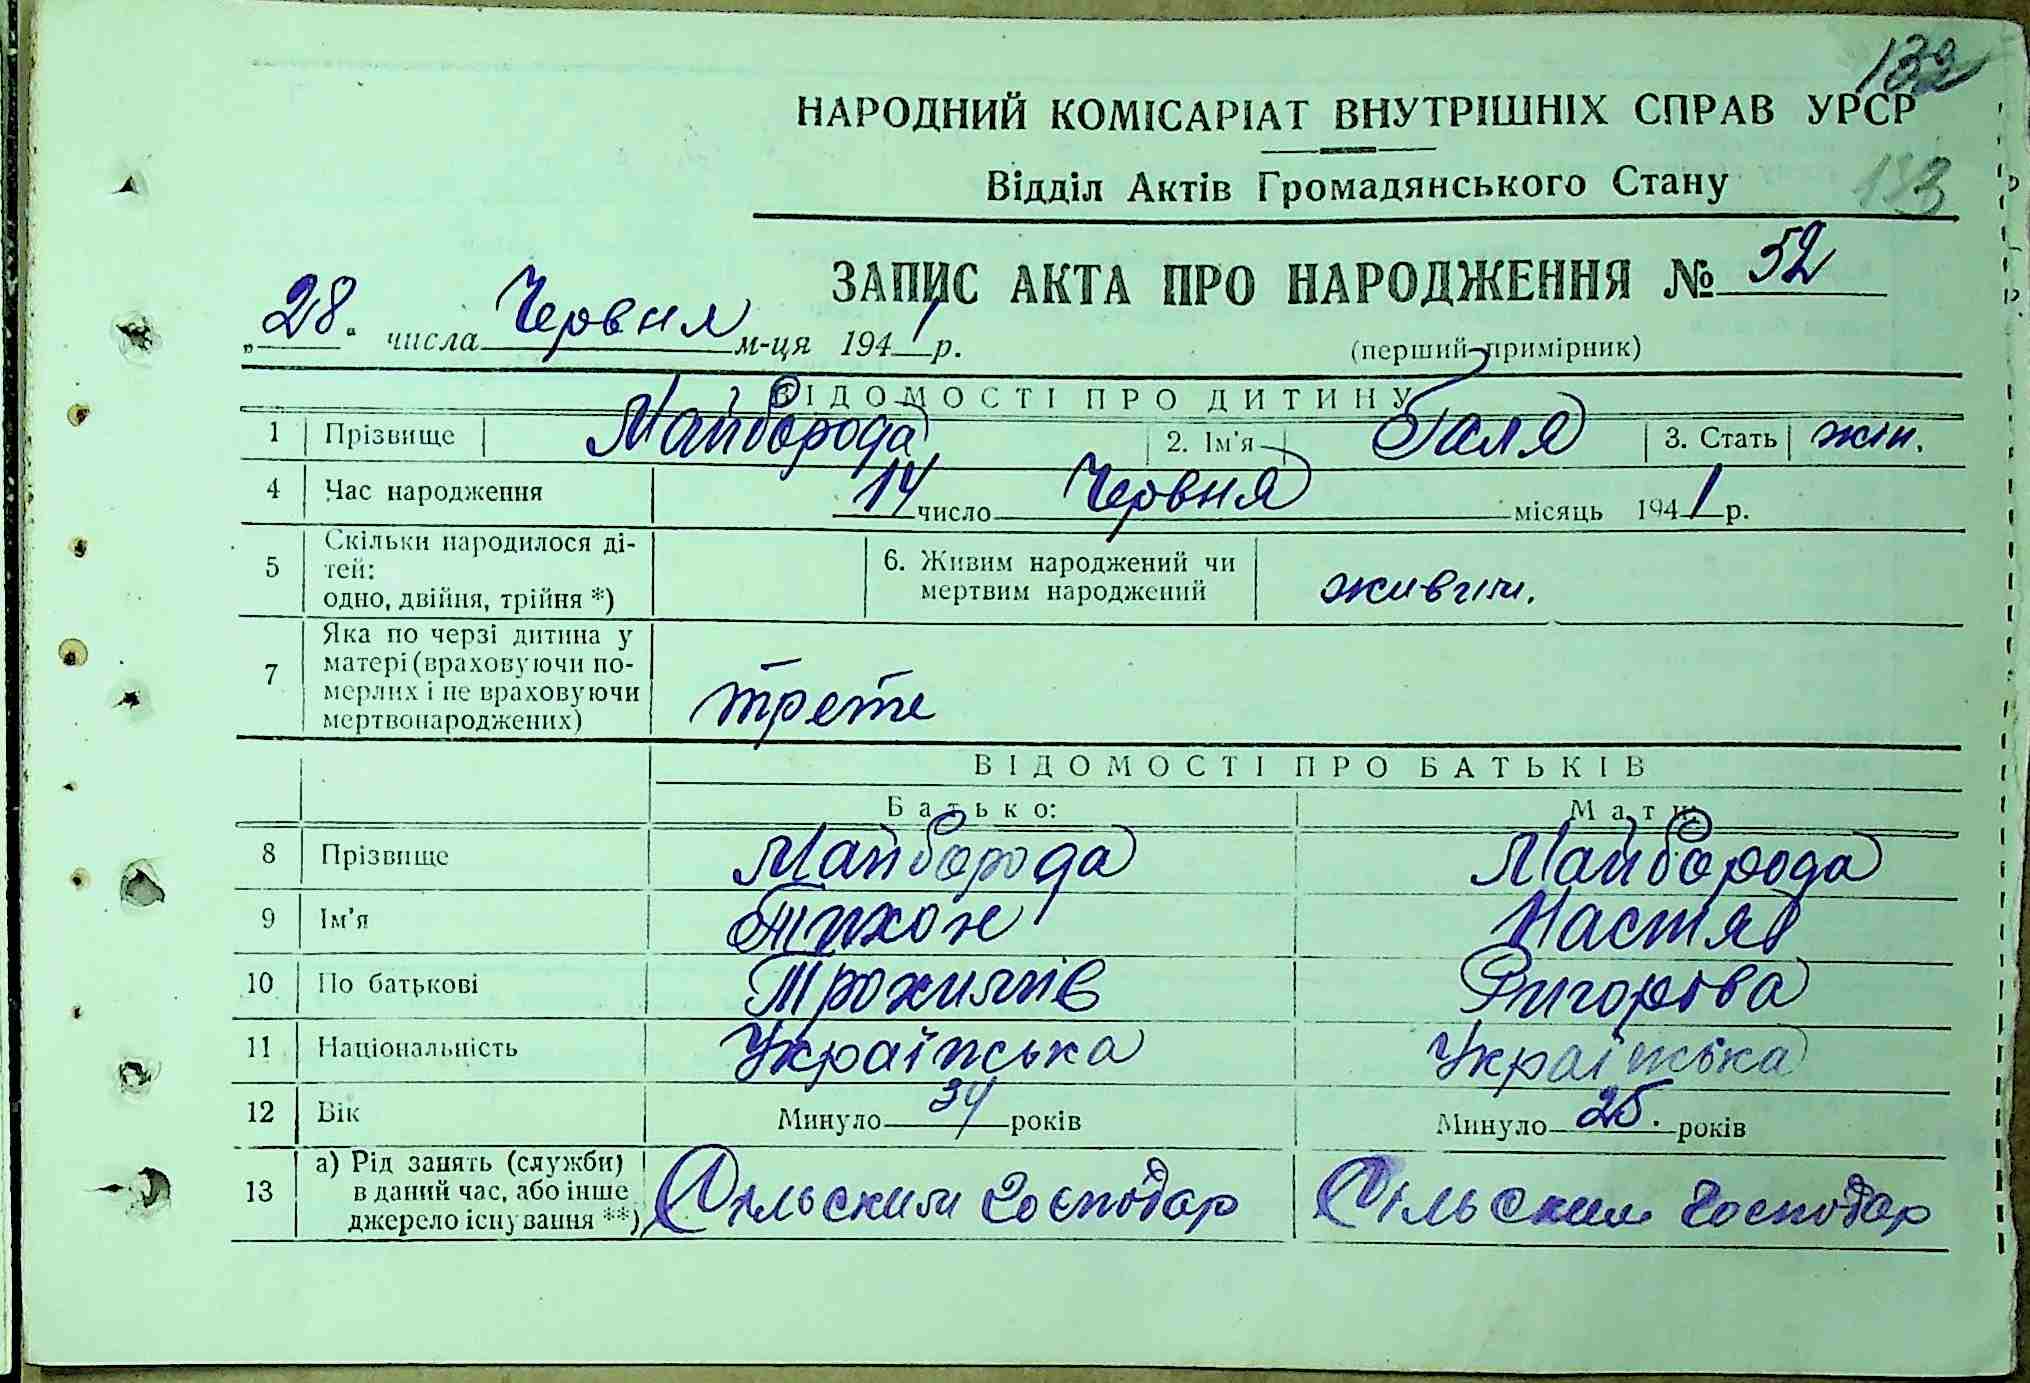 132
НАРОДНИЙ КОМІСАРІАТ ВНУТРІШНІХ СПРАВ УРСР
Відділ Актів Громадянського Стану
133
ЗАПИС АКТА ПРО НАРОДЖЕННЯ № 52
„28“ числа Червня м-ця 1941 р.
(перший примірник)
ВІДОМОСТІ ПРО ДИТИНУ
1 Прізвище Майборода 2. Ім'я Галя 3. Стать жін.
4 Час народження 14 число Червня місяць 1941 р.
5 Скільки народилося ді-
тей:
одно, двійня, трійня *)
6. Живим народжений чи
мертвим народжений живим.
7 Яка по черзі дитина у
матері (враховуючи по-
мерлих і не враховуючи
мертвонароджених) трете
ВІДОМОСТІ ПРО БАТЬКІВ
Батько: Мати:
8 Прізвище Майборода Майборода
9 Ім'я Тихон Настя
10 По батькові Трохимів Григорова
11 Національність Українська Українська
12 Вік Минуло 34 років Минуло 25. років
13 а) Рід занять (служби)
в даний час, або інше
джерело існування **) Сільским господар Сільским господар